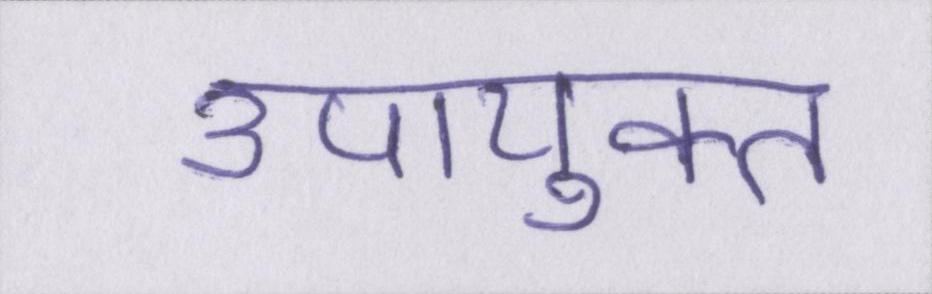 उपायुक्त